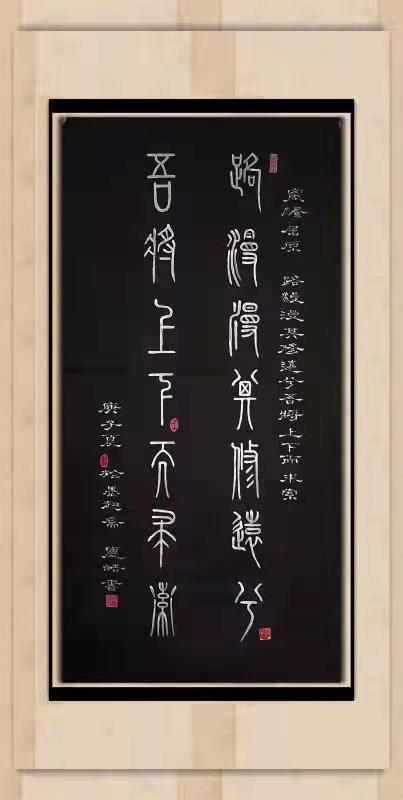 離騷屈原 路漫漫其修遠兮吾將上下而求索
路漫漫其修遠兮
吾將上下而求索
庚子夏 於墨趣齋 書